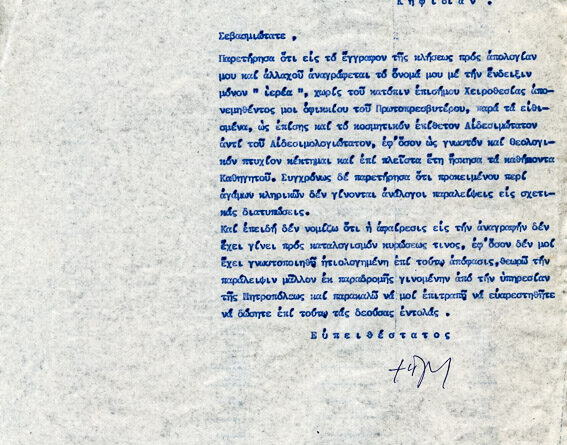 Κ η φ ι σ ι ά ν .
Σεβασμιώτατε ,
Παρετήρησα ὅτι εἰς τό ἔγγραφον τῆς κλήσεως πρός ἀπολογίαν
μου καί ἀλλαχοῦ ἀναγράφεται τό ὄνομά μου μέ τήν ἔνδειξιν
μόνον " ἱερέα ", χωρίς τοῦ κατόπιν ἐπισήμου Χειροθεσίας ἀπο-
νεμηθέντος μοι ὀφφικίου τοῦ Πρωτοπρεσβυτέρου, παρά τά εἰθι-
σμένα, ὡς ἐπίσης καί τό κοσμητικόν ἐπίθετον Αἰδεσιμώτατον
ἀντί τοῦ Αἰδεσιμολογιώτατον, ἐφ'ὅσον ὡς γνωστόν καί Θεολογι-
κόν πτυχίον κέκτημαι καί ἐπί πλεῖστα ἔτη ἤσκησα τά καθήκοντα
Καθηγητοῦ. Συγχρόνως δέ παρετήρησα ὅτι προκειμένου περί
ἀγάμων κληρικῶν δέν γίνονται ἀνάλογοι παραλείψεις εἰς σχετι-
κάς διατυπώσεις.
Καί ἐπειδή δέν νομίζω ὅτι ἡ ἀφαίρεσις εἰς τήν ἀναγραφήν δέν
ἔχει γίνει πρός καταλογισμόν κυρώσεως τινος, ἐφ'ὅσον δέν μοί
ἔχει γνωστοποιηθῆ ἠτιολογημένη ἐπί τούτῳ ἀπόφασις,θεωρῶ τήν
παράλειψιν μᾶλλον ἐκ παραδρομῆς γινομένην ἀπό τήν ὑπηρεσίαν
τῆς Μητροπόλεως καί παρακαλῶ νά μοί ἐπιτραπῇ νά εὐαρεστηθῆτε
νά δώσητε ἐπί τούτῳ τάς δεούσας ἐντολάς .
Ε ὐ π ε ι θ έ σ τ α τ ο ς